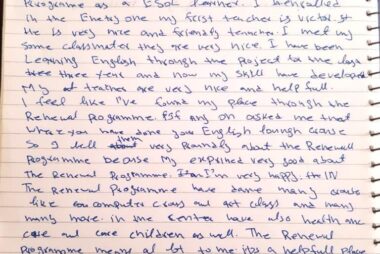 Programme as a ESOL learner. I enrolled
in the Enety one my first teacher is Victor. st
He is very nice and friendly teancher. I met my
some classmater they are very nice. I have been
Learning English through the project to the days
three year and now my skill have developed
My teather are very nice and help full.
I feel like I've found my place through the
Renewal Programme. If any on asked me that
where you have done your English laungh crause
So I tell them very Proundly about the Renewall
Programme becase My exprined very good about
The Renewal Programme. I'm very happy. the IN
The Renewal Programme have dane many crause
like computer craus and art class and many
many more. in the center have also health and
care and care children as well. The Renewal
Programme means al lot to me its a helpfull place